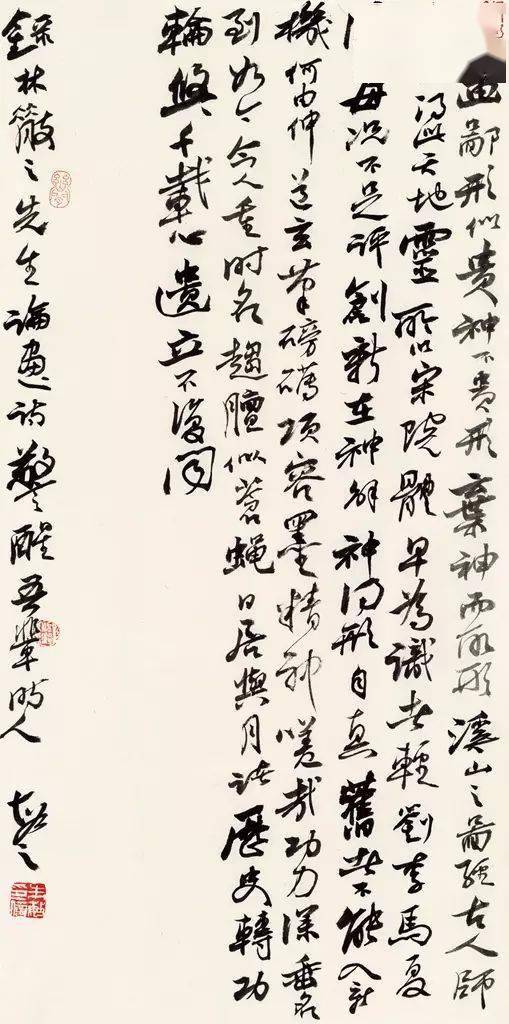 画鄙形似貴神不貴形棄神而取形溪山之圖經古人師
得此天地靈所以宋院體早為識者輕劉李馬夏
毋況不足評創新在神解神同形自真舊者不能入新
機何由伸道玄筆磅礴項容墨精神嗟哉功力深垂名
到如今今人重時名趨膻似蒼蠅日居與月諸歷史轉功
輪悠悠千載遺立不復同
錄林散之先生論畫詩警醒吾輩時人